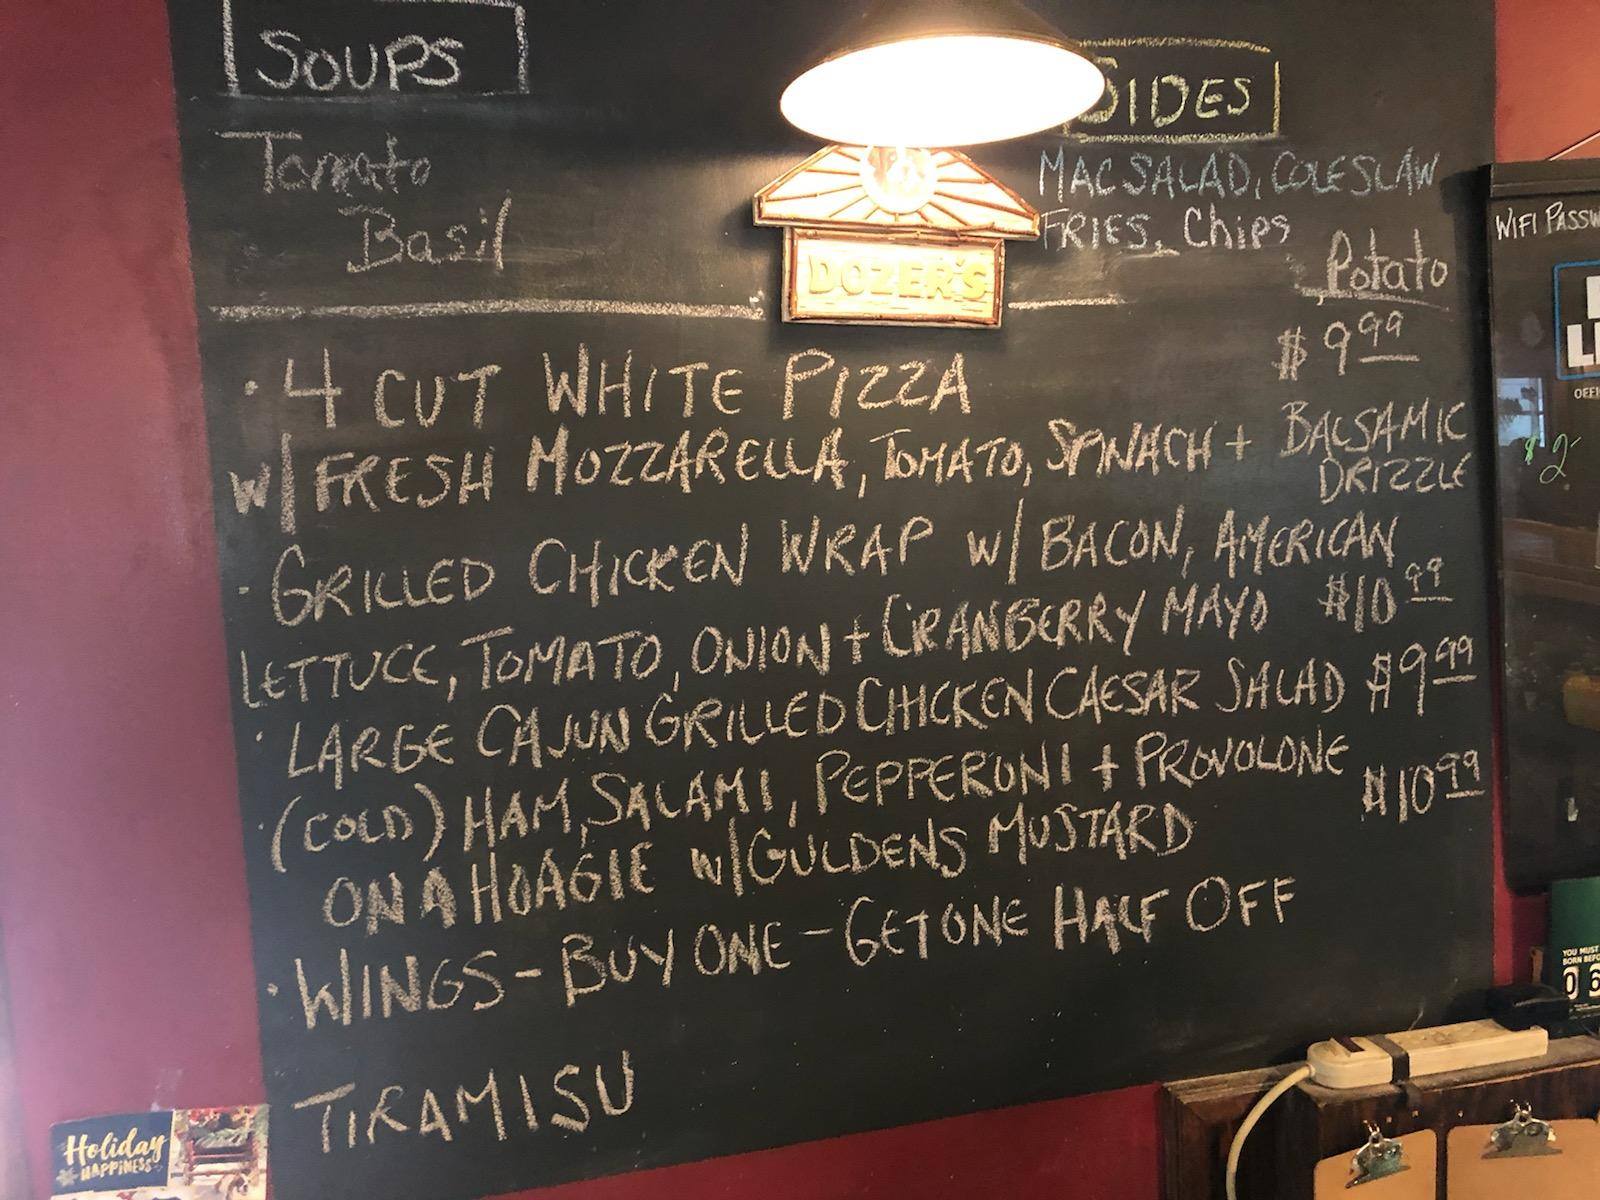 SOUPS
Tomato
Basil
SIDES
MAC SALAD, COLESLAW
FRIES, Chips
Potato
DOZER'S
· 4 CUT WHITE PIZZA $9.99
W/ FRESH MOZZARELLA, TOMATO, SPINACH + BALSAMIC
DRIZZLE
· GRILLED CHICKEN WRAP W/ BACON, AMERICAN
LETTUCE, TOMATO, ONION + CRANBERRY MAYO $10.99
· LARGE CAJUN GRILLED CHICKEN CAESAR SALAD $9.99
· (COLD) HAM, SALAMI, PEPPERONI + PROVOLONE
ON A HOAGIE W/ GULDENS MUSTARD $10.99
· WINGS - BUY ONE - GET ONE HALF OFF
TIRAMISU
WIFI PASSW
$2
Holiday
HAPPINESS
YOU MUST
BORN BEFO
0 6